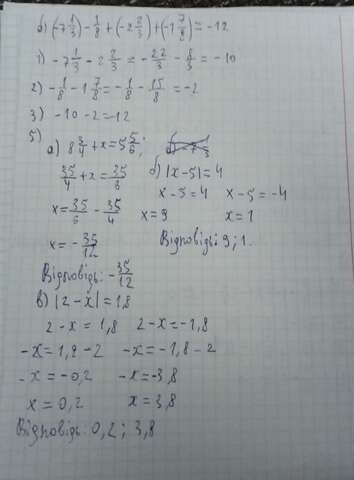 б) (-7 1/3) - 1/8 + (-2 2/3) + (-1 7/8) = -12
1) -7 1/3 - 2 2/3 = -22/3 - 8/3 = -10
2) -1/8 - 1 7/8 = -1/8 - 15/8 = -2
3) -10 - 2 = -12
5)
а) 8 3/4 + x = 5 5/6;
35/4 + x = 35/6
x = 35/6 - 35/4
x = -35/12
Відповідь: -35/12
б) |x-5| = 4
x-5=4 x-5=-4
x=9 x=1
Відповідь: 9; 1.
в) |2-x| = 1,8
2-x = 1,8 2-x = -1,8
-x = 1,8 - 2 -x = -1,8 - 2
-x = -0,2 -x = -3,8
x = 0,2 x = 3,8
Відповідь: 0,2; 3,8